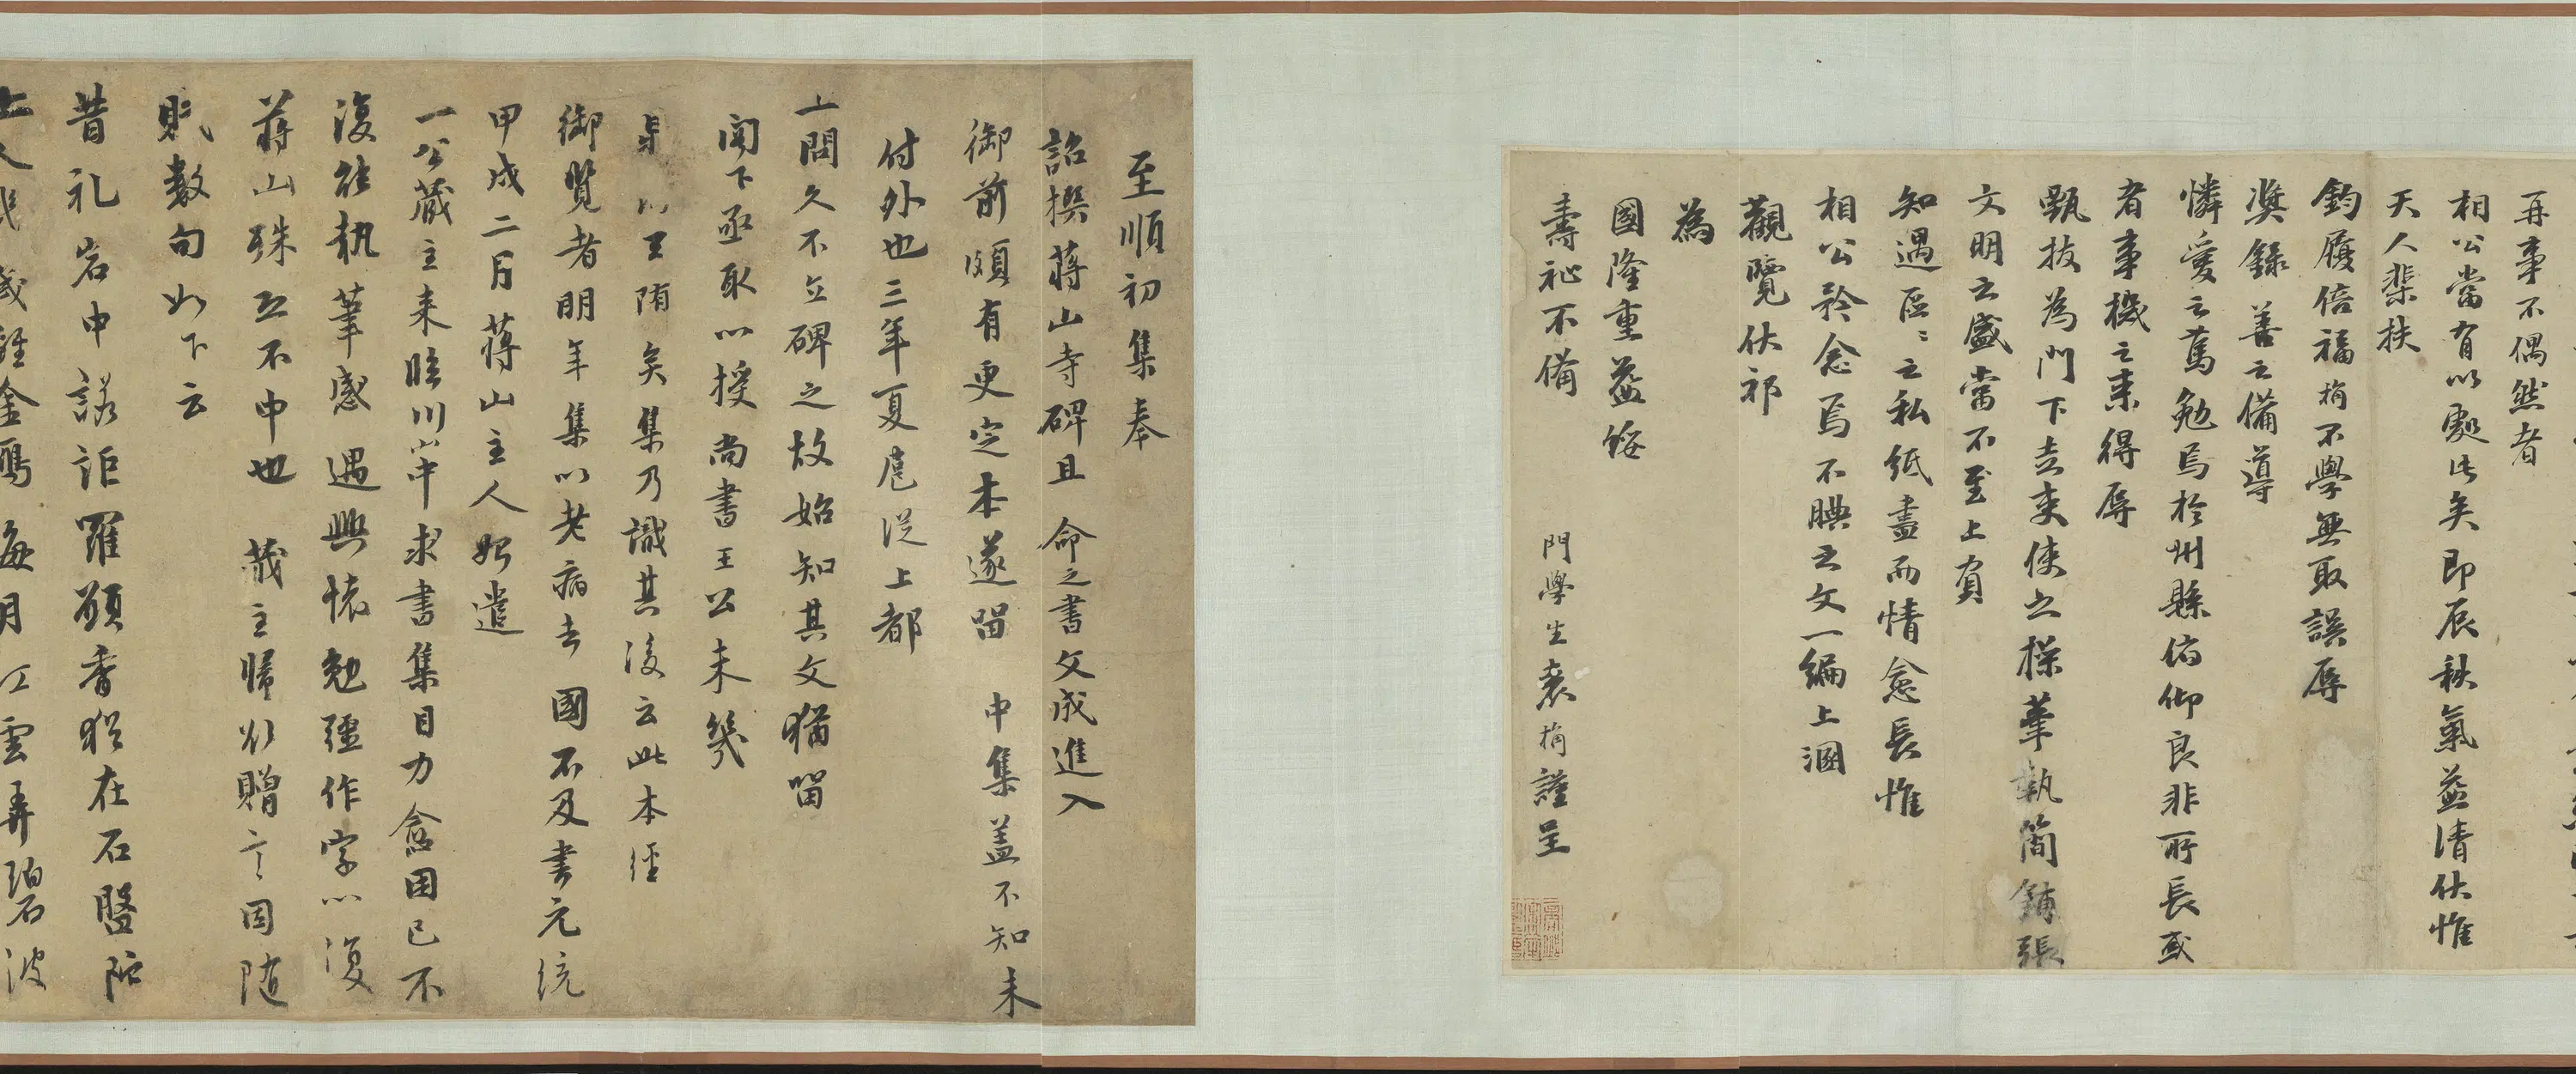 再事不偶然者
相公當有以處此矣即辰秋氣益清伏惟
天人棐扶
鈞履倍福桷不學無取誤辱
獎錄善之備導
憐愛之篤勉焉於州縣俯仰良非所長或
者事機之來得辱
甄拔為門下走吏使之操筆執簡鋪張
文明之盛當不至上負
知遇區〻之私紙盡而情愈長惟
相公矜念焉不腆之文一編上溷
觀覽伏祁
為
國隆重益綏
壽祉不備
門學生袁桷謹呈
至順初集奉
詔撰蔣山寺碑且命之書文成進入
御前頗有更定本遂留中集蓋不知未
付外也三年夏扈從上都
上問久不立碑之故始知其文猶留
閣下亟取以授尚書王公未幾
以王陏矣集乃識其後云此本經
御覽者明年集以老病去國不及書元統
甲戌二月蔣山主人好遣
一公藏主來臨川山中求書集目力愈困已不
復能執筆感遇興懷勉彊作字以復
蔣山殊立不中也藏主歸以贈言因隨
賦數句如下云
昔礼岩中諾詎羅顧香猶在石盤陀
上人 金 海月江雲弄碧波